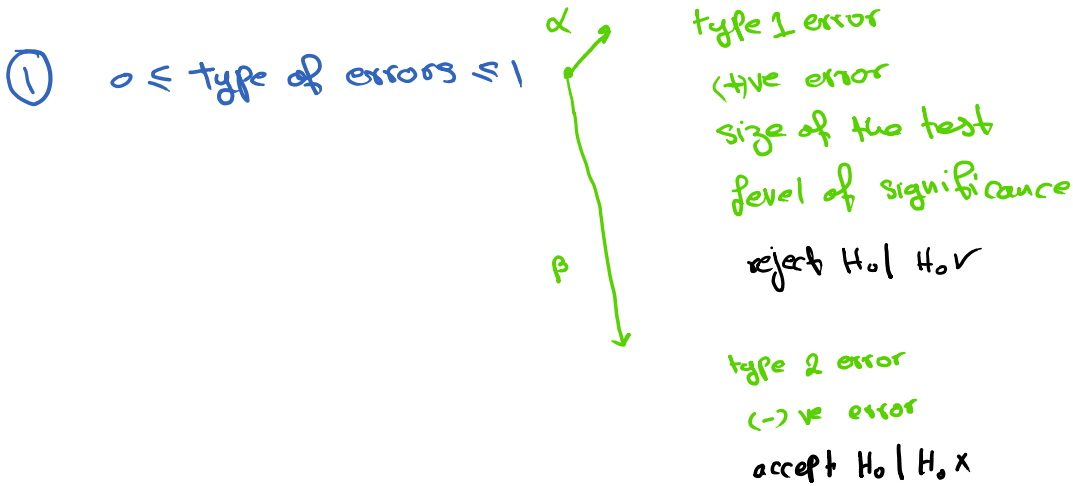 ① 0 ≤ type of errors ≤ 1
α
type 1 error
(+)ve error
size of the test
level of significance
reject H₀ | H₀ ✓
β
type 2 error
(-)ve error
accept H₀ | H₀ ×